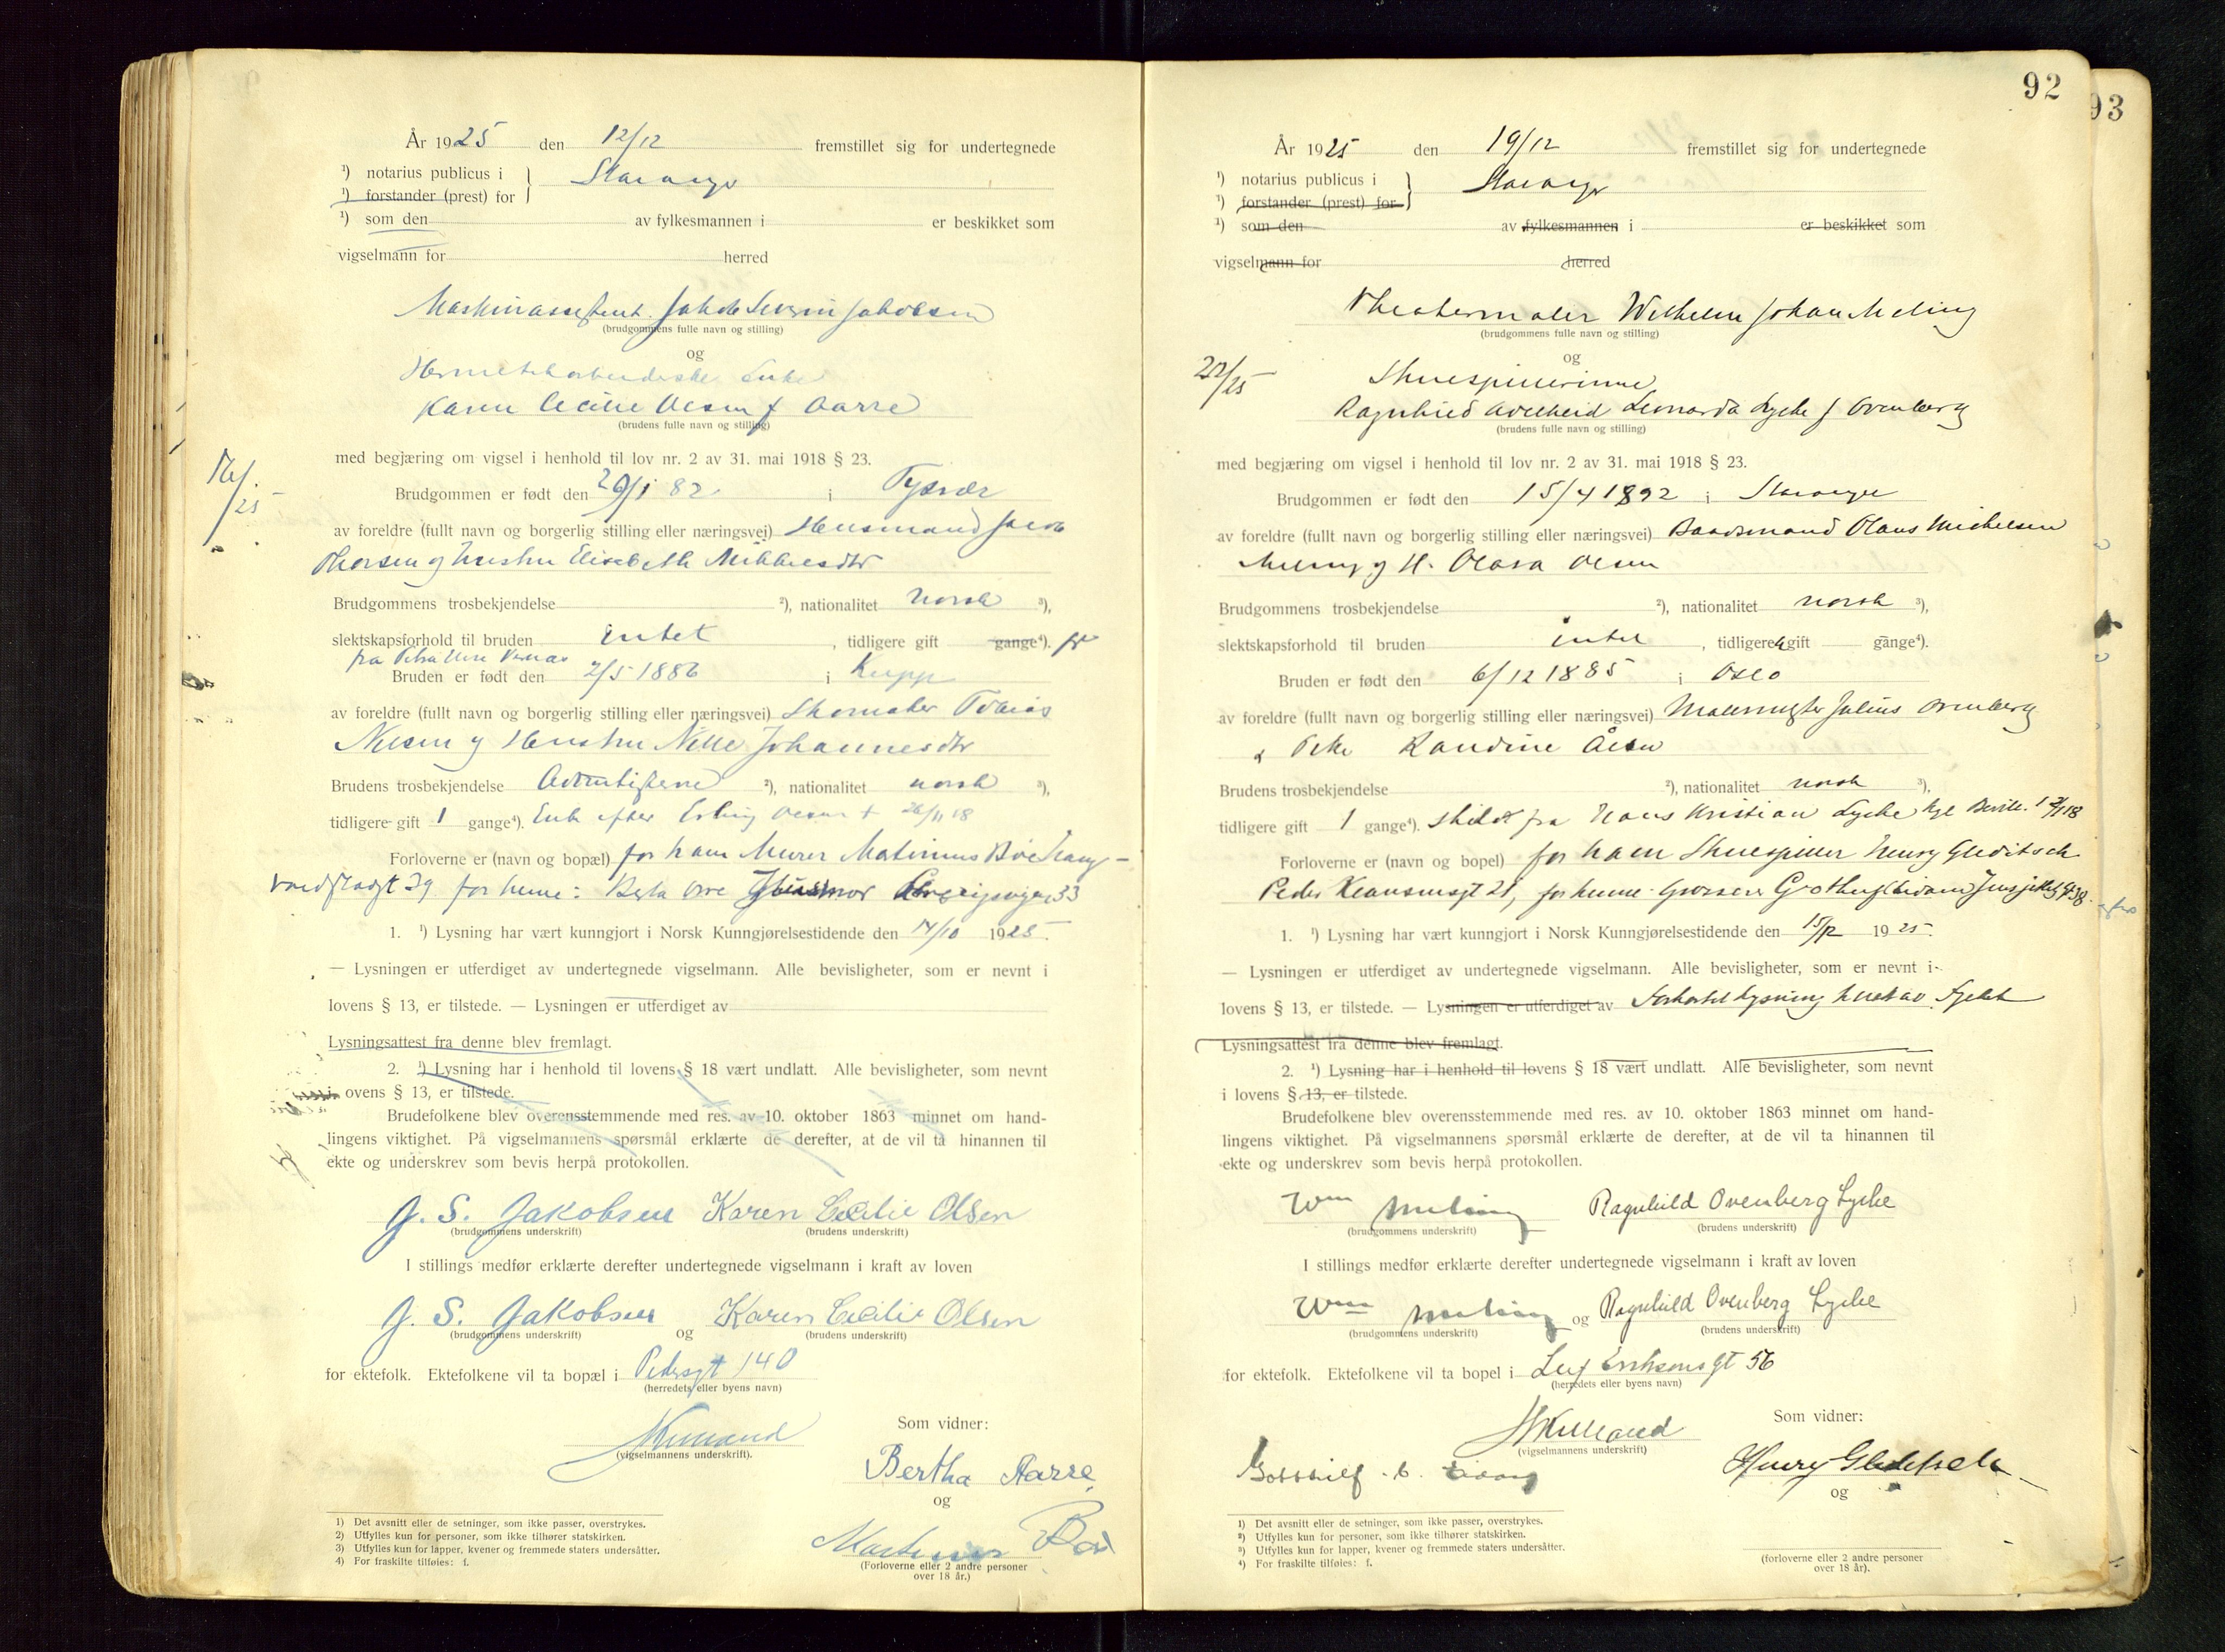 År 1925 den 12/12 fremstillet sig for undertegnede
¹) notarius publicus i
¹) forstander (prest) for } Stavanger
¹) som den av fylkesmannen i er beskikket som
vigselmann for herred
Maskinassistent Jakob Severin Jakobsen
(brudgommens fulle navn og stilling)
og
Hermetikarbeiderske Enke
Karen Cecilie Olsen f Aarre
(brudens fulle navn og stilling)
med begjæring om vigsel i henhold til lov nr. 2 av 31. mai 1918 § 23.
Brudgommen er født den 29/1 82 i Tysvær
av foreldre (fullt navn og borgerlig stilling eller næringsvei) Husmand Jacob
Thorsen og Hustru Elisabeth Mikkelsdtr
Brudgommens trosbekjendelse ²), nationalitet norsk ³),
slektskapsforhold til bruden intet , tidligere gift gange⁴).
fra Petra
Bruden er født den 2/5 1886 i Klepp
av foreldre (fullt navn og borgerlig stilling eller næringsvei) Skomaker Tobias
Nilsen og Hustru Nille Johannesdtr
Brudens trosbekjendelse Adventisterne ²), nationalitet norsk ³),
tidligere gift 1 gange⁴). Enke efter Erling Olsen + 26/11 18
Forloverne er (navn og bopæl) for ham Murer Matinius Bøe Haug-
valdstadgt 39 for henne: Berta Aarre Husmor 33
1. ¹) Lysning har vært kunngjort i Norsk Kunngjørelsestidende den 14/10 1925.
— Lysningen er utferdiget av undertegnede vigselmann. Alle bevisligheter, som er nevnt i
lovens § 13, er tilstede. — Lysningen er utferdiget av
Lysningsattest fra denne blev fremlagt.
2. ¹) Lysning har i henhold til lovens § 18 vært undlatt. Alle bevisligheter, som nevnt
i lovens § 13, er tilstede.
Brudefolkene blev overensstemmende med res. av 10. oktober 1863 minnet om hand-
lingens viktighet. På vigselmannens spørsmål erklærte de derefter, at de vil ta hinannen til
ekte og underskrev som bevis herpå protokollen.
J. S. Jakobsen Karen Cecilie Olsen
(brudgommens underskrift) (brudens underskrift)
I stillings medfør erklærte derefter undertegnede vigselmann i kraft av loven
J. S. Jakobsen og Karen Cecilie Olsen
(brudgommens underskrift) (brudens underskrift)
for ektefolk. Ektefolkene vil ta bopæl i Pedersgt 140
(herredets eller byens navn)
Kielland
(vigselmannens underskrift).
Som vidner:
Bertha Aarre
og
Martinius Bøe
(Forloverne eller 2 andre personer
over 18 år.)
1) Det avsnitt eller de setninger, som ikke passer, overstrykes.
2) Utfylles kun for personer, som ikke tilhører statskirken.
3) Utfylles kun for lapper, kvener og fremmede staters undersåtter.
4) For fraskilte tilføies: f.
92
93
År 1925 den 19/12 fremstillet sig for undertegnede
¹) notarius publicus i
¹) forstander (prest) for } Stavanger
¹) som den av fylkesmannen i er beskikket som
vigselmann for herred
Theatermaler Wilhelm Johan Meling
(brudgommens fulle navn og stilling)
og
Skuespillerinne
Ragnhild Adelheid Leonarda Lycke f Ovenberg
(brudens fulle navn og stilling)
med begjæring om vigsel i henhold til lov nr. 2 av 31. mai 1918 § 23.
Brudgommen er født den 15/4 1892 i Stavanger
av foreldre (fullt navn og borgerlig stilling eller næringsvei) Baadsmand Olaus Mickelsen
Meling og H. Olava Olsen
Brudgommens trosbekjendelse ²), nationalitet norsk ³),
slektskapsforhold til bruden intet , tidligere gift gange⁴).
Bruden er født den 6/12 1885 i Oslo
av foreldre (fullt navn og borgerlig stilling eller næringsvei) Malermester Julius Ovenberg
Randine Olsen
Brudens trosbekjendelse ²), nationalitet norsk ³),
tidligere gift 1 gange⁴). skilt fra Hans Kristian Lycke
Forloverne er (navn og bopel) for ham Skuespiller Henry Gleditsch
Peder Klausensgt 21, for henne
1. ¹) Lysning har vært kunngjort i Norsk Kunngjørelsestidende den 15/12 1925.
— Lysningen er utferdiget av undertegnede vigselmann. Alle bevisligheter, som er nevnt i
lovens § 13, er tilstede. — Lysningen er utferdiget av
Lysningsattest fra denne blev fremlagt.
2. ¹) Lysning har i henhold til lovens § 18 vært undlatt. Alle bevisligheter, som nevnt
i lovens § 13, er tilstede.
Brudefolkene blev overensstemmende med res. av 10. oktober 1863 minnet om hand-
lingens viktighet. På vigselmannens spørsmål erklærte de derefter, at de vil ta hinannen til
ekte og underskrev som bevis herpå protokollen.
Wm Meling Ragnhild Ovenberg Lycke
(brudgommens underskrift) (brudens underskrift)
I stillings medfør erklærte derefter undertegnede vigselmann i kraft av loven
Wm Meling og Ragnhild Ovenberg Lycke
(brudgommens underskrift) (brudens underskrift)
for ektefolk. Ektefolkene vil ta bopel i Leif Eriksonsgt 56
(herredets eller byens navn)
Kielland
(vigselmannens underskrift)
Som vidner:
Henry Gleditsch
og
(forloverne eller 2 andre personer
over 18 år).
1) Det avsnitt eller de setninger, som ikke passer, overstrykes.
²) Utfylles kun for personer, som ikke tilhører statskirken.
³) Utfylles kun for lapper, kvener og fremmede staters undersåtter.
⁴) For fraskilte tilføies: f.